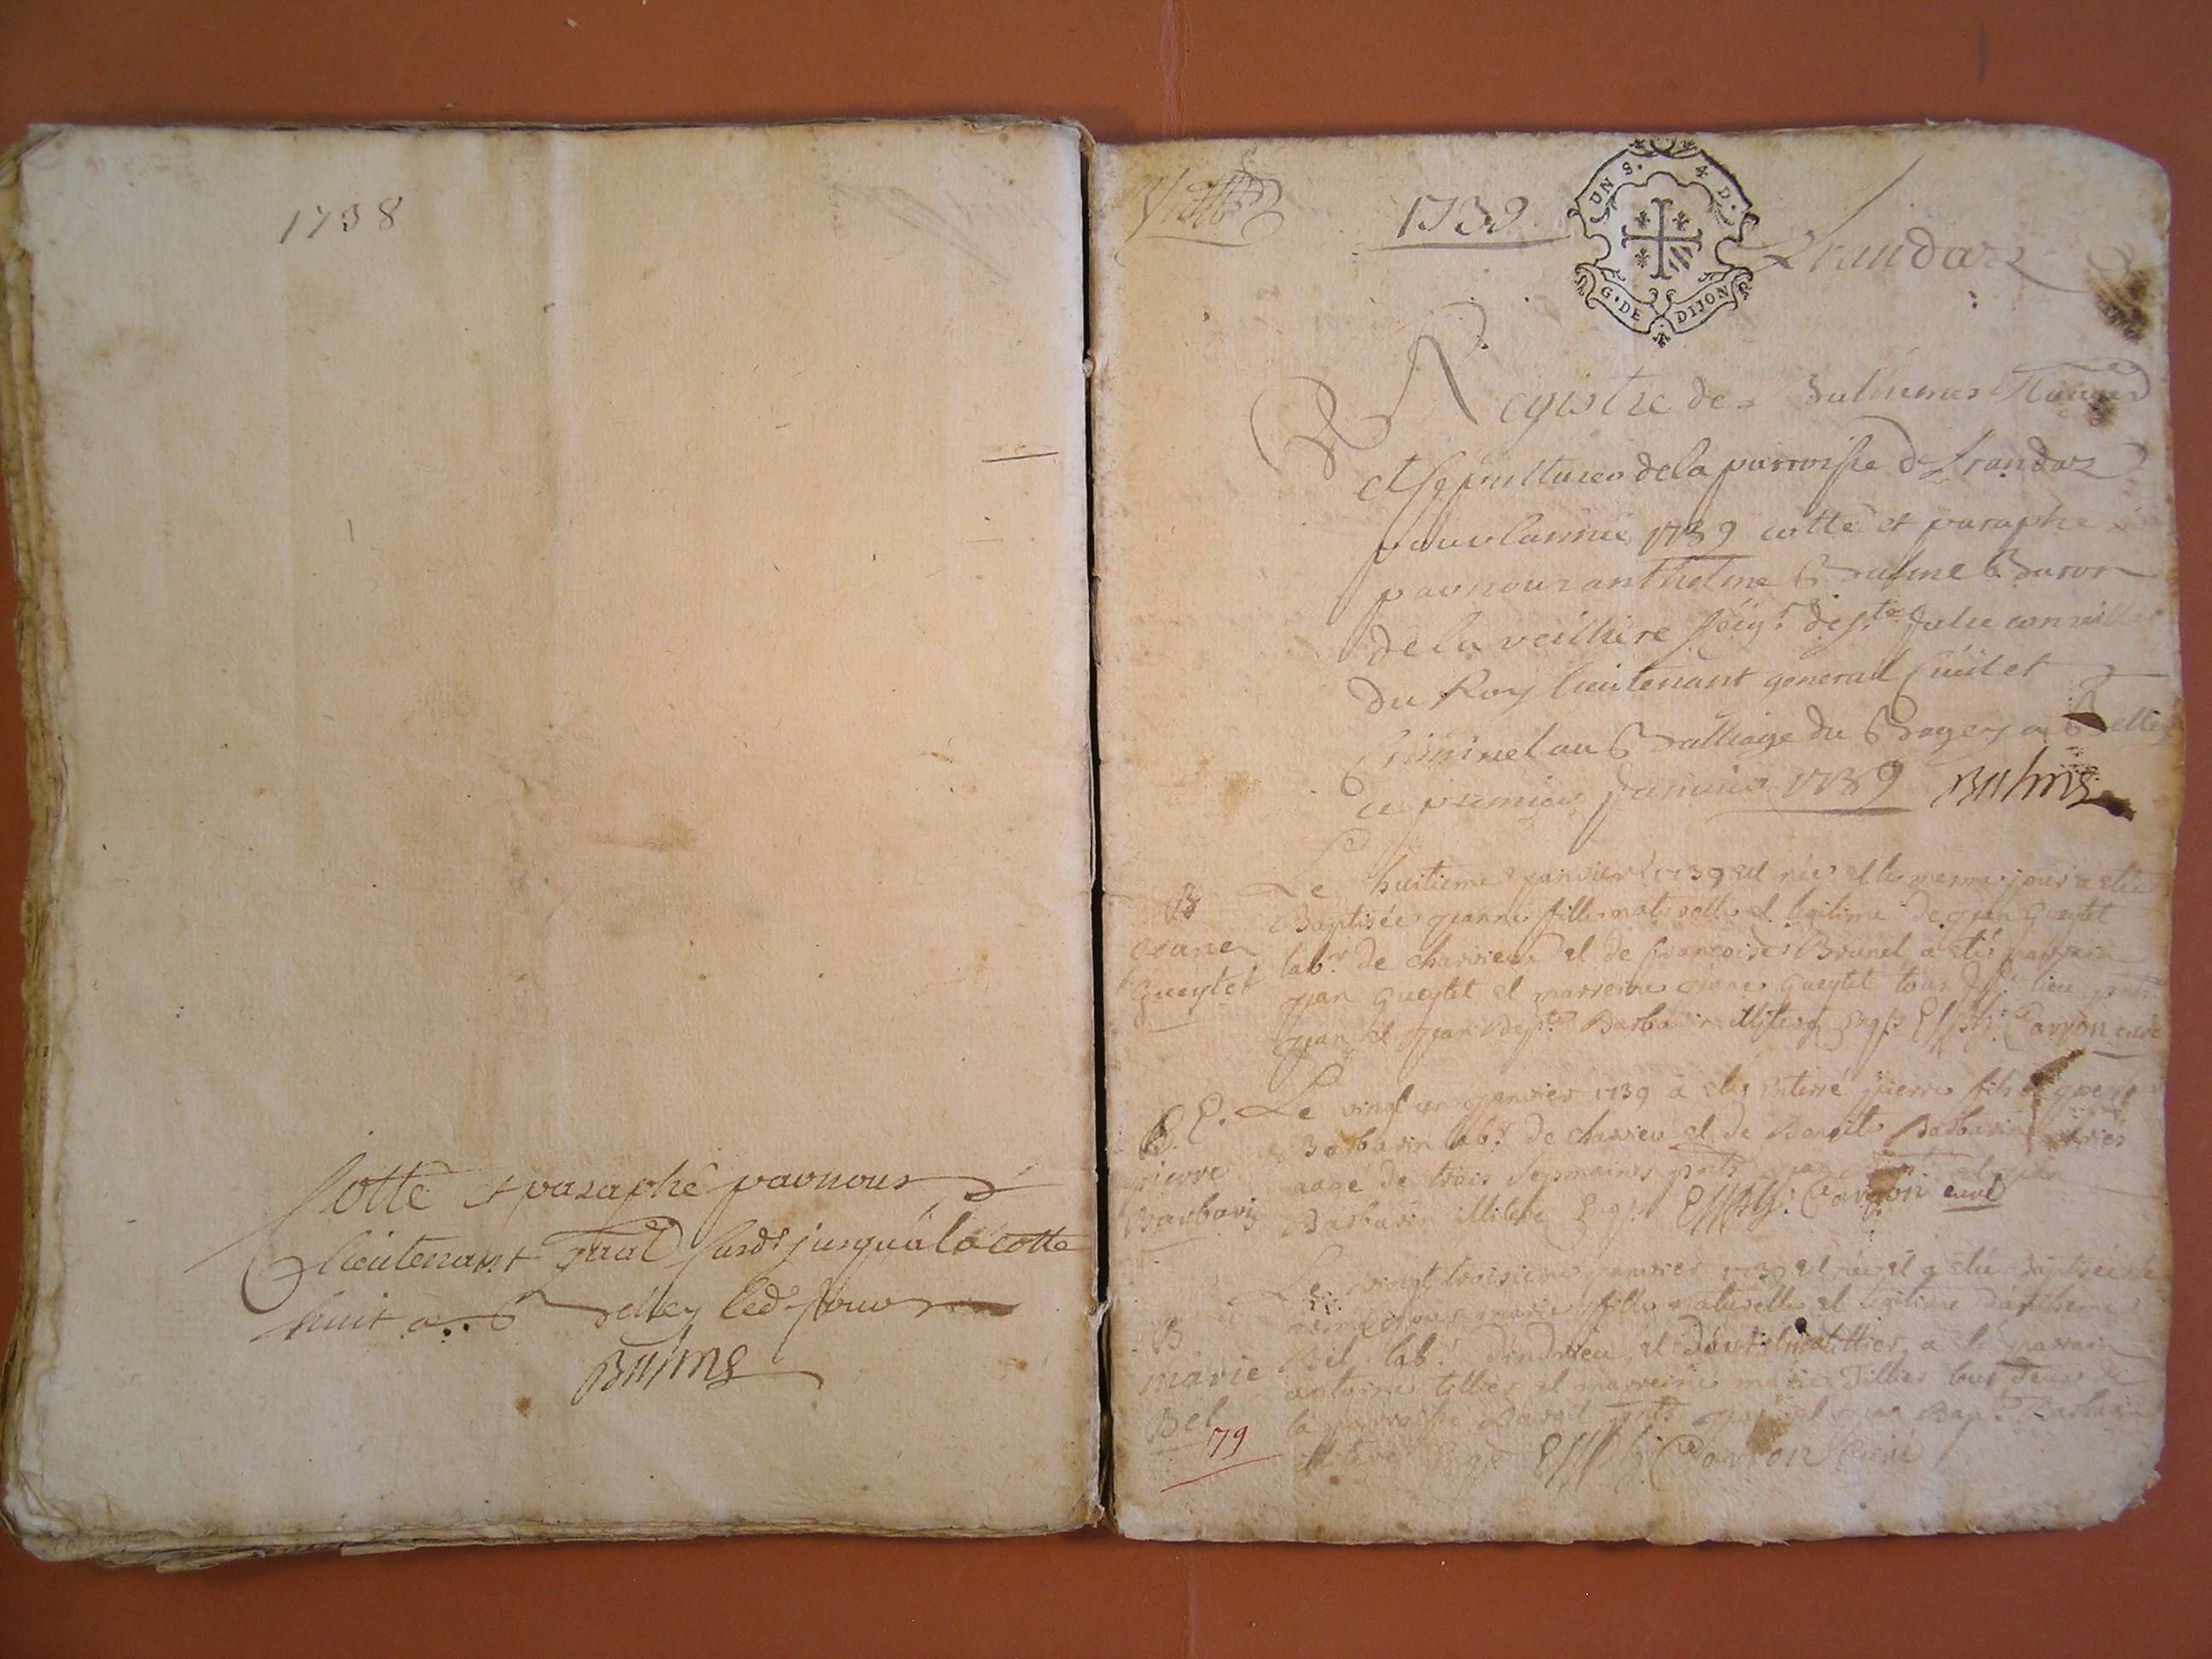 1738
Cotté et paraphé par nous
lieutenant gnal susd jusqu'a la cotte
huit a Belley led jour
Balme
1739
UN S. 4 D.
G. DE DIJON
Registre de
et sepultures de la parroisse de
pour lannée 1739 cotté et paraphé
par nous anthelme Balme Baron
de la veilliere seigr de ste Julie conseiller
du Roy lieutenant general Civil et
Criminel au Balliage du Bugey a Belley
ce premier Janvier 1739 Balme
B
Jeane
Gueytet
Le huitieme janvier 1739 est née et le mesme jour a esté
Baptisée jeanne fille naturelle et legitime de jean Gueytet
labr de charvieu et de françoise Brunet a esté parrain
jean Gueytet et marreine jeane Gueytet tous lieu
jean et jean Bapte Barbarin Carron curé
B.E.
pierre
Barbarin
Le vingt un janvier 1739 a esté Enterré pierre fils
Barbarin labr de charvieu et de Benoite Barbarin mariés
aagé de trois sepmaines pnts et jean
Barbarin illiteré Carron curé
B
marie
Bel
Le vingt troisieme janvier 1739 est née et a esté Baptisée le
mesme jour marie fille naturelle et legitime
Bel labr dandrieu et tillier a parrain
antoine tillier et marreine marie Tillier tout deux de
la parroisse pnts Bapt Barbarin
Carron Curé
79